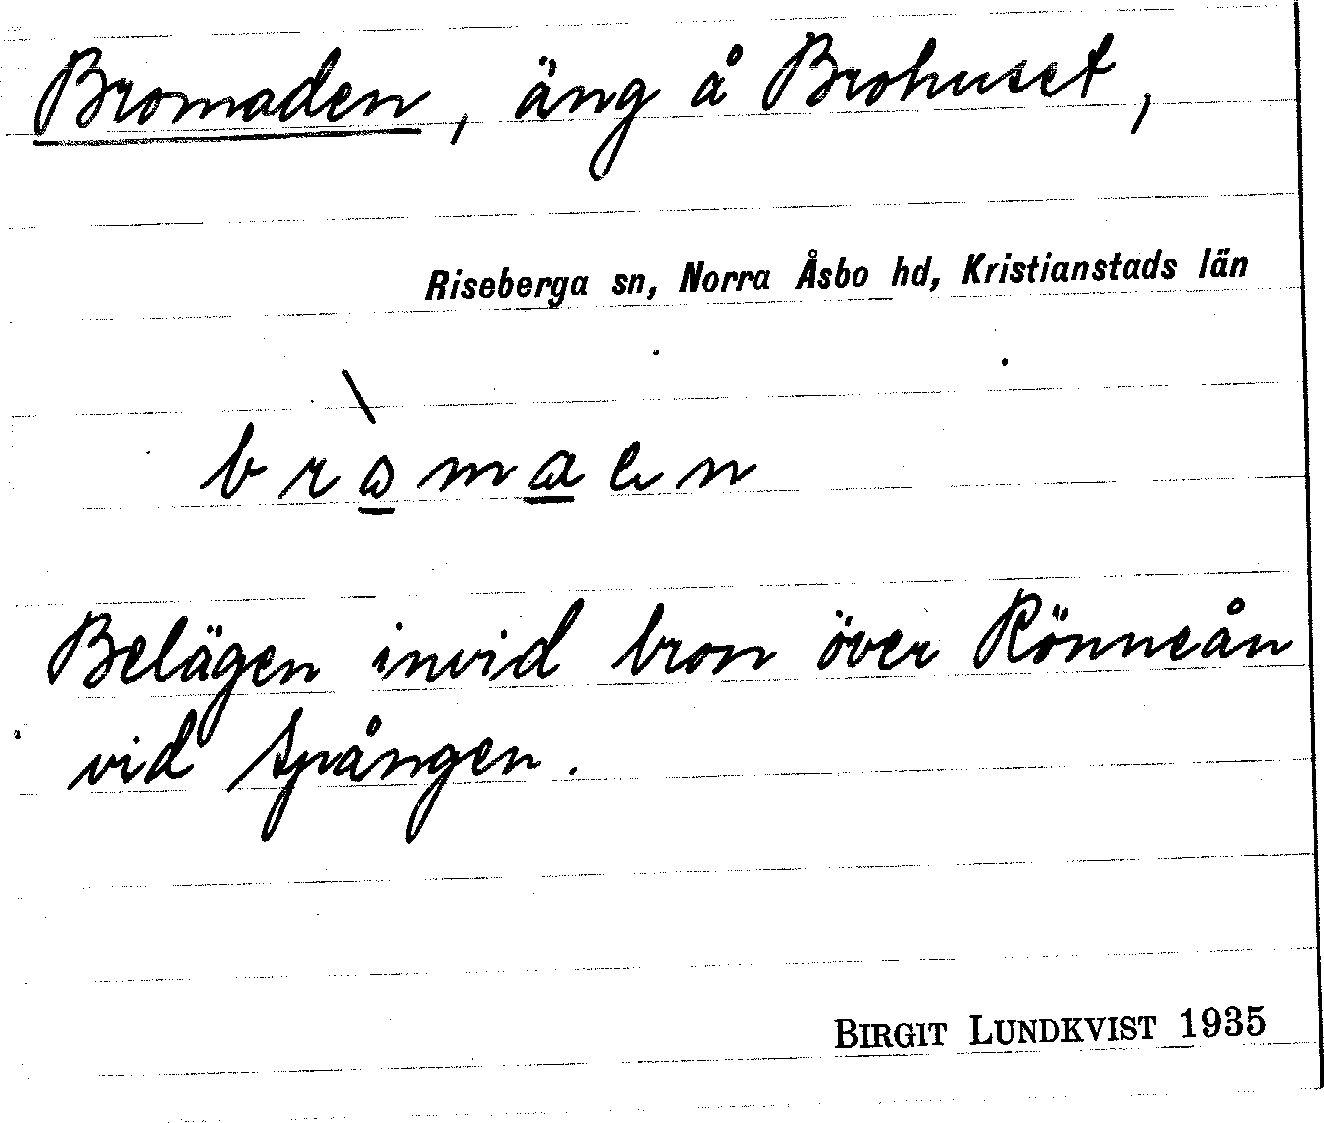 Bromaden, äng å Brohuset,
Riseberga sn, Norra Åsbo hd, Kristianstads län
Belägen invid bron över Rönneån
vid Spången.
BIRGIT LUNDKVIST 1935